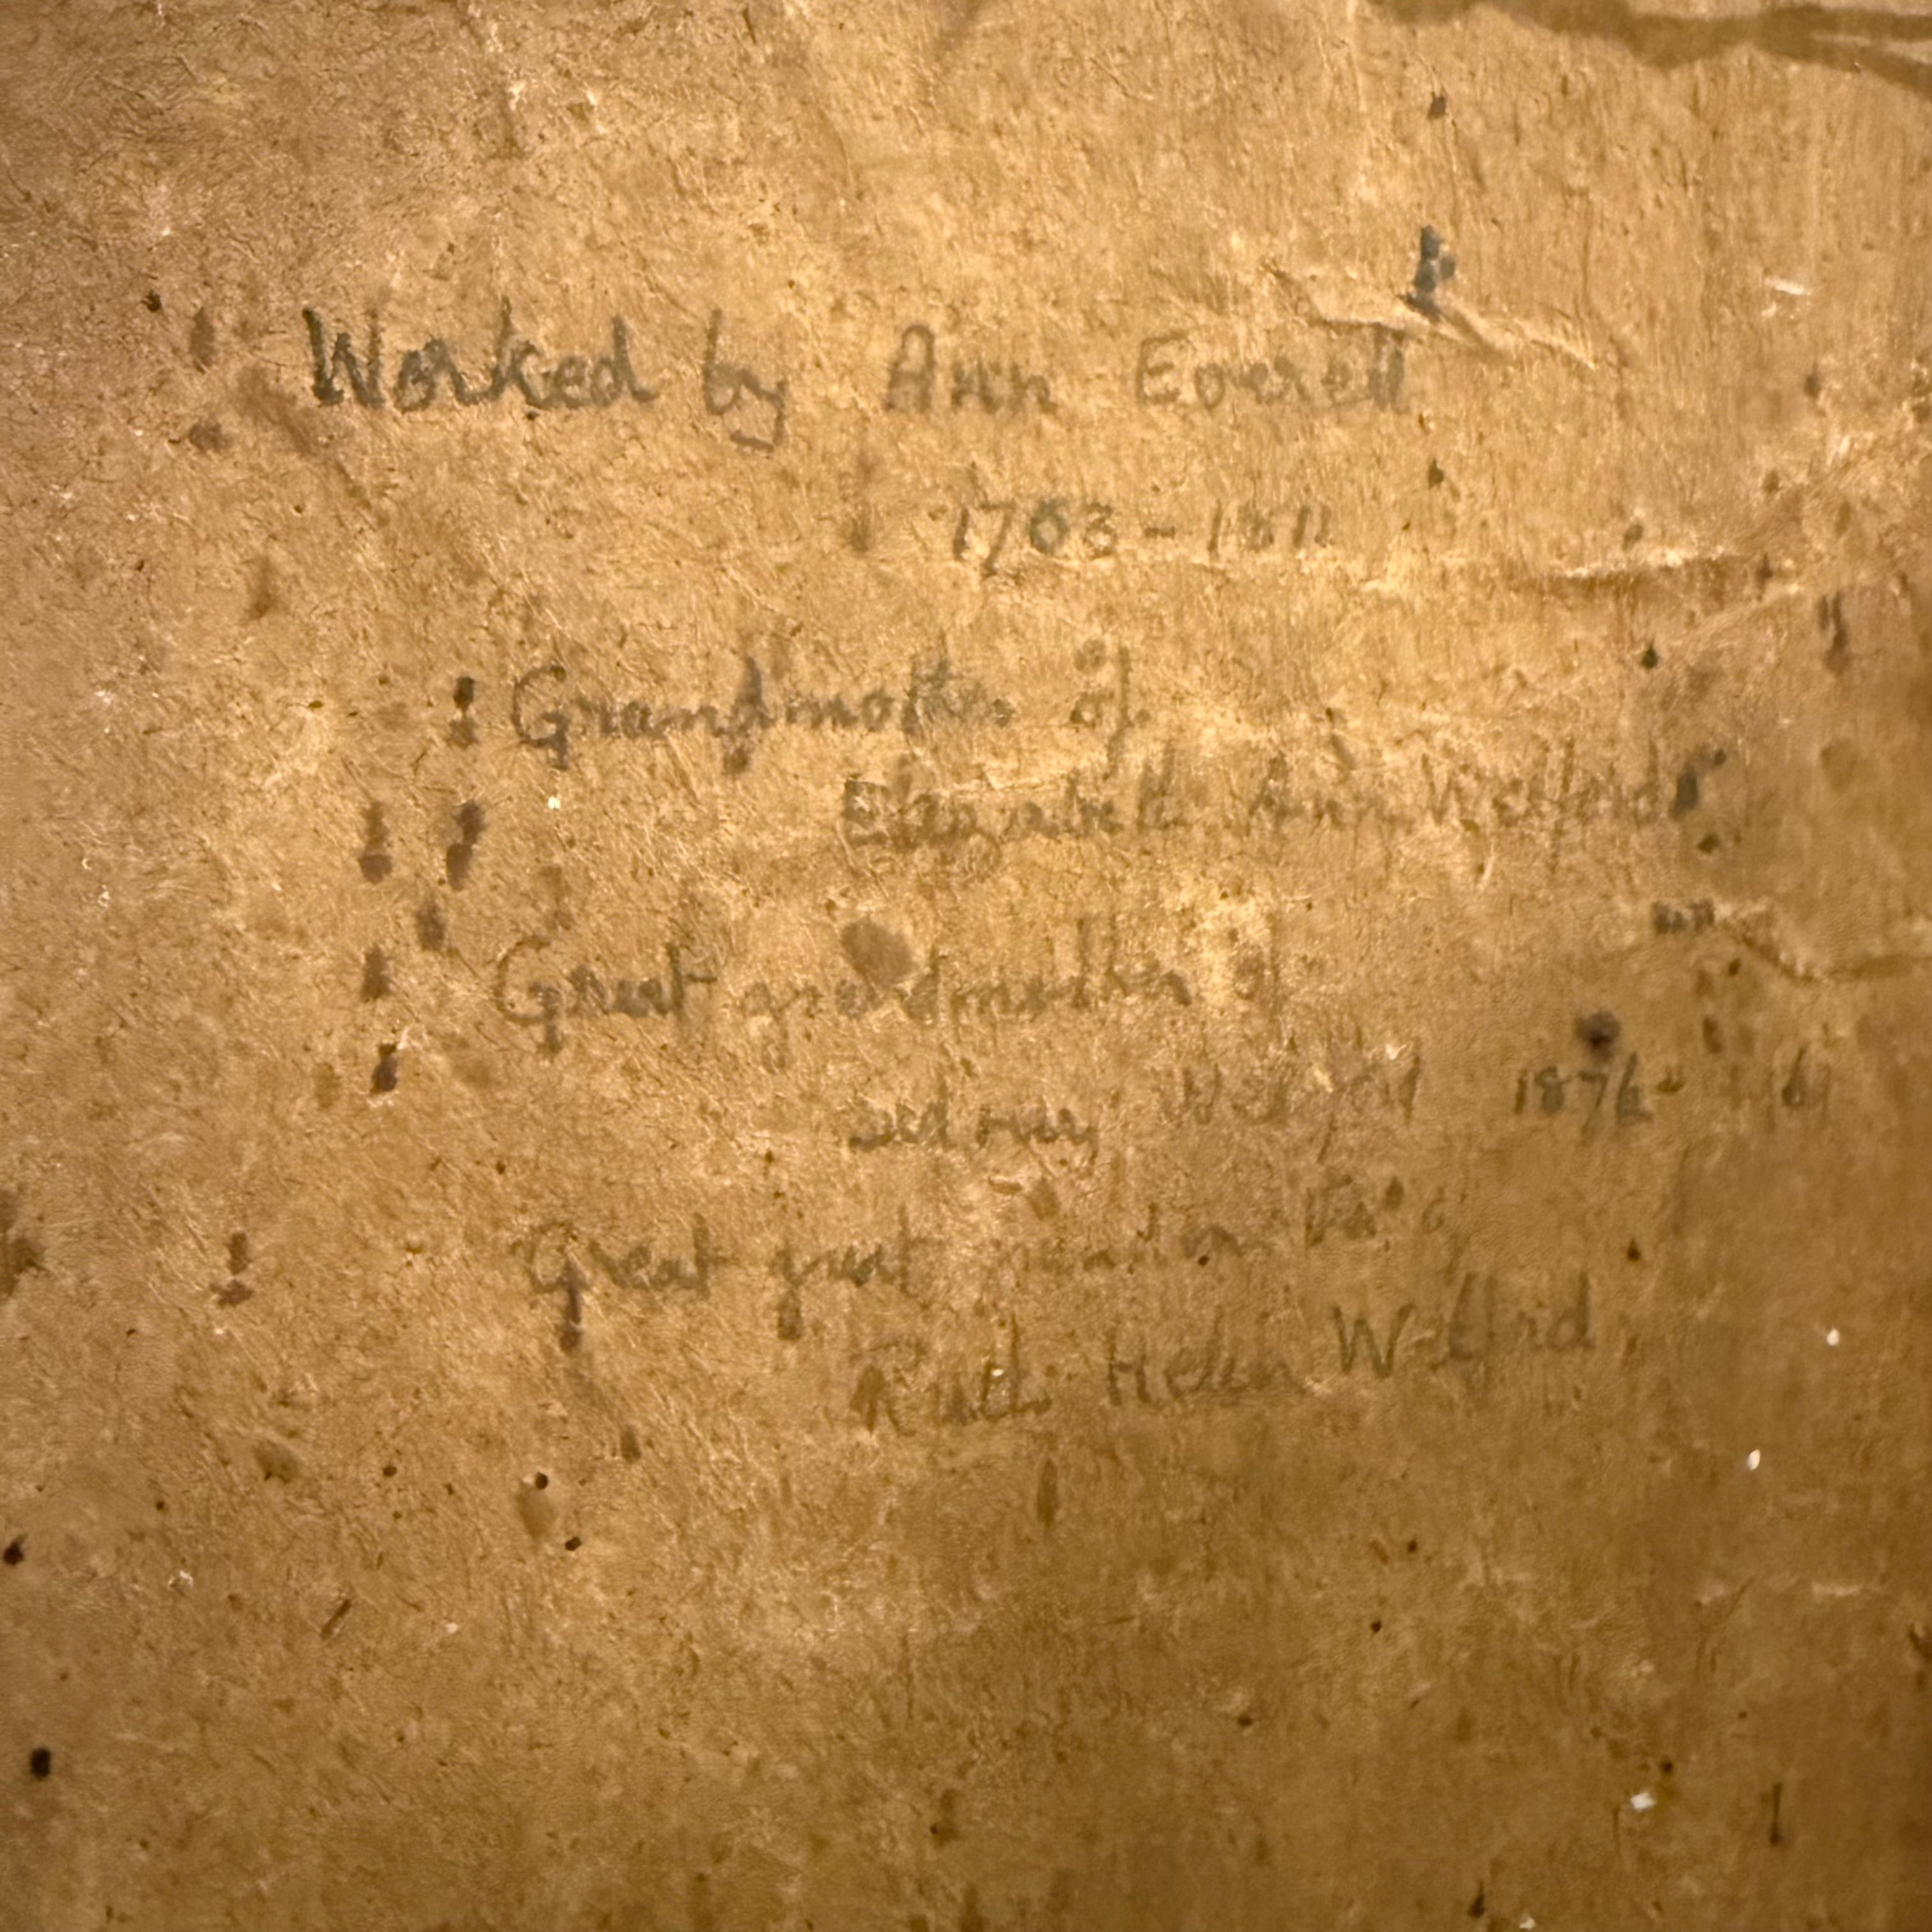 Worked by Ann Everett
1763 - 1811
Grandmother of
Elizabeth Ann Welford
Great grandmother of
Sidney Welford 1876 -
Great great grandmother of
Ruth Helen Welford